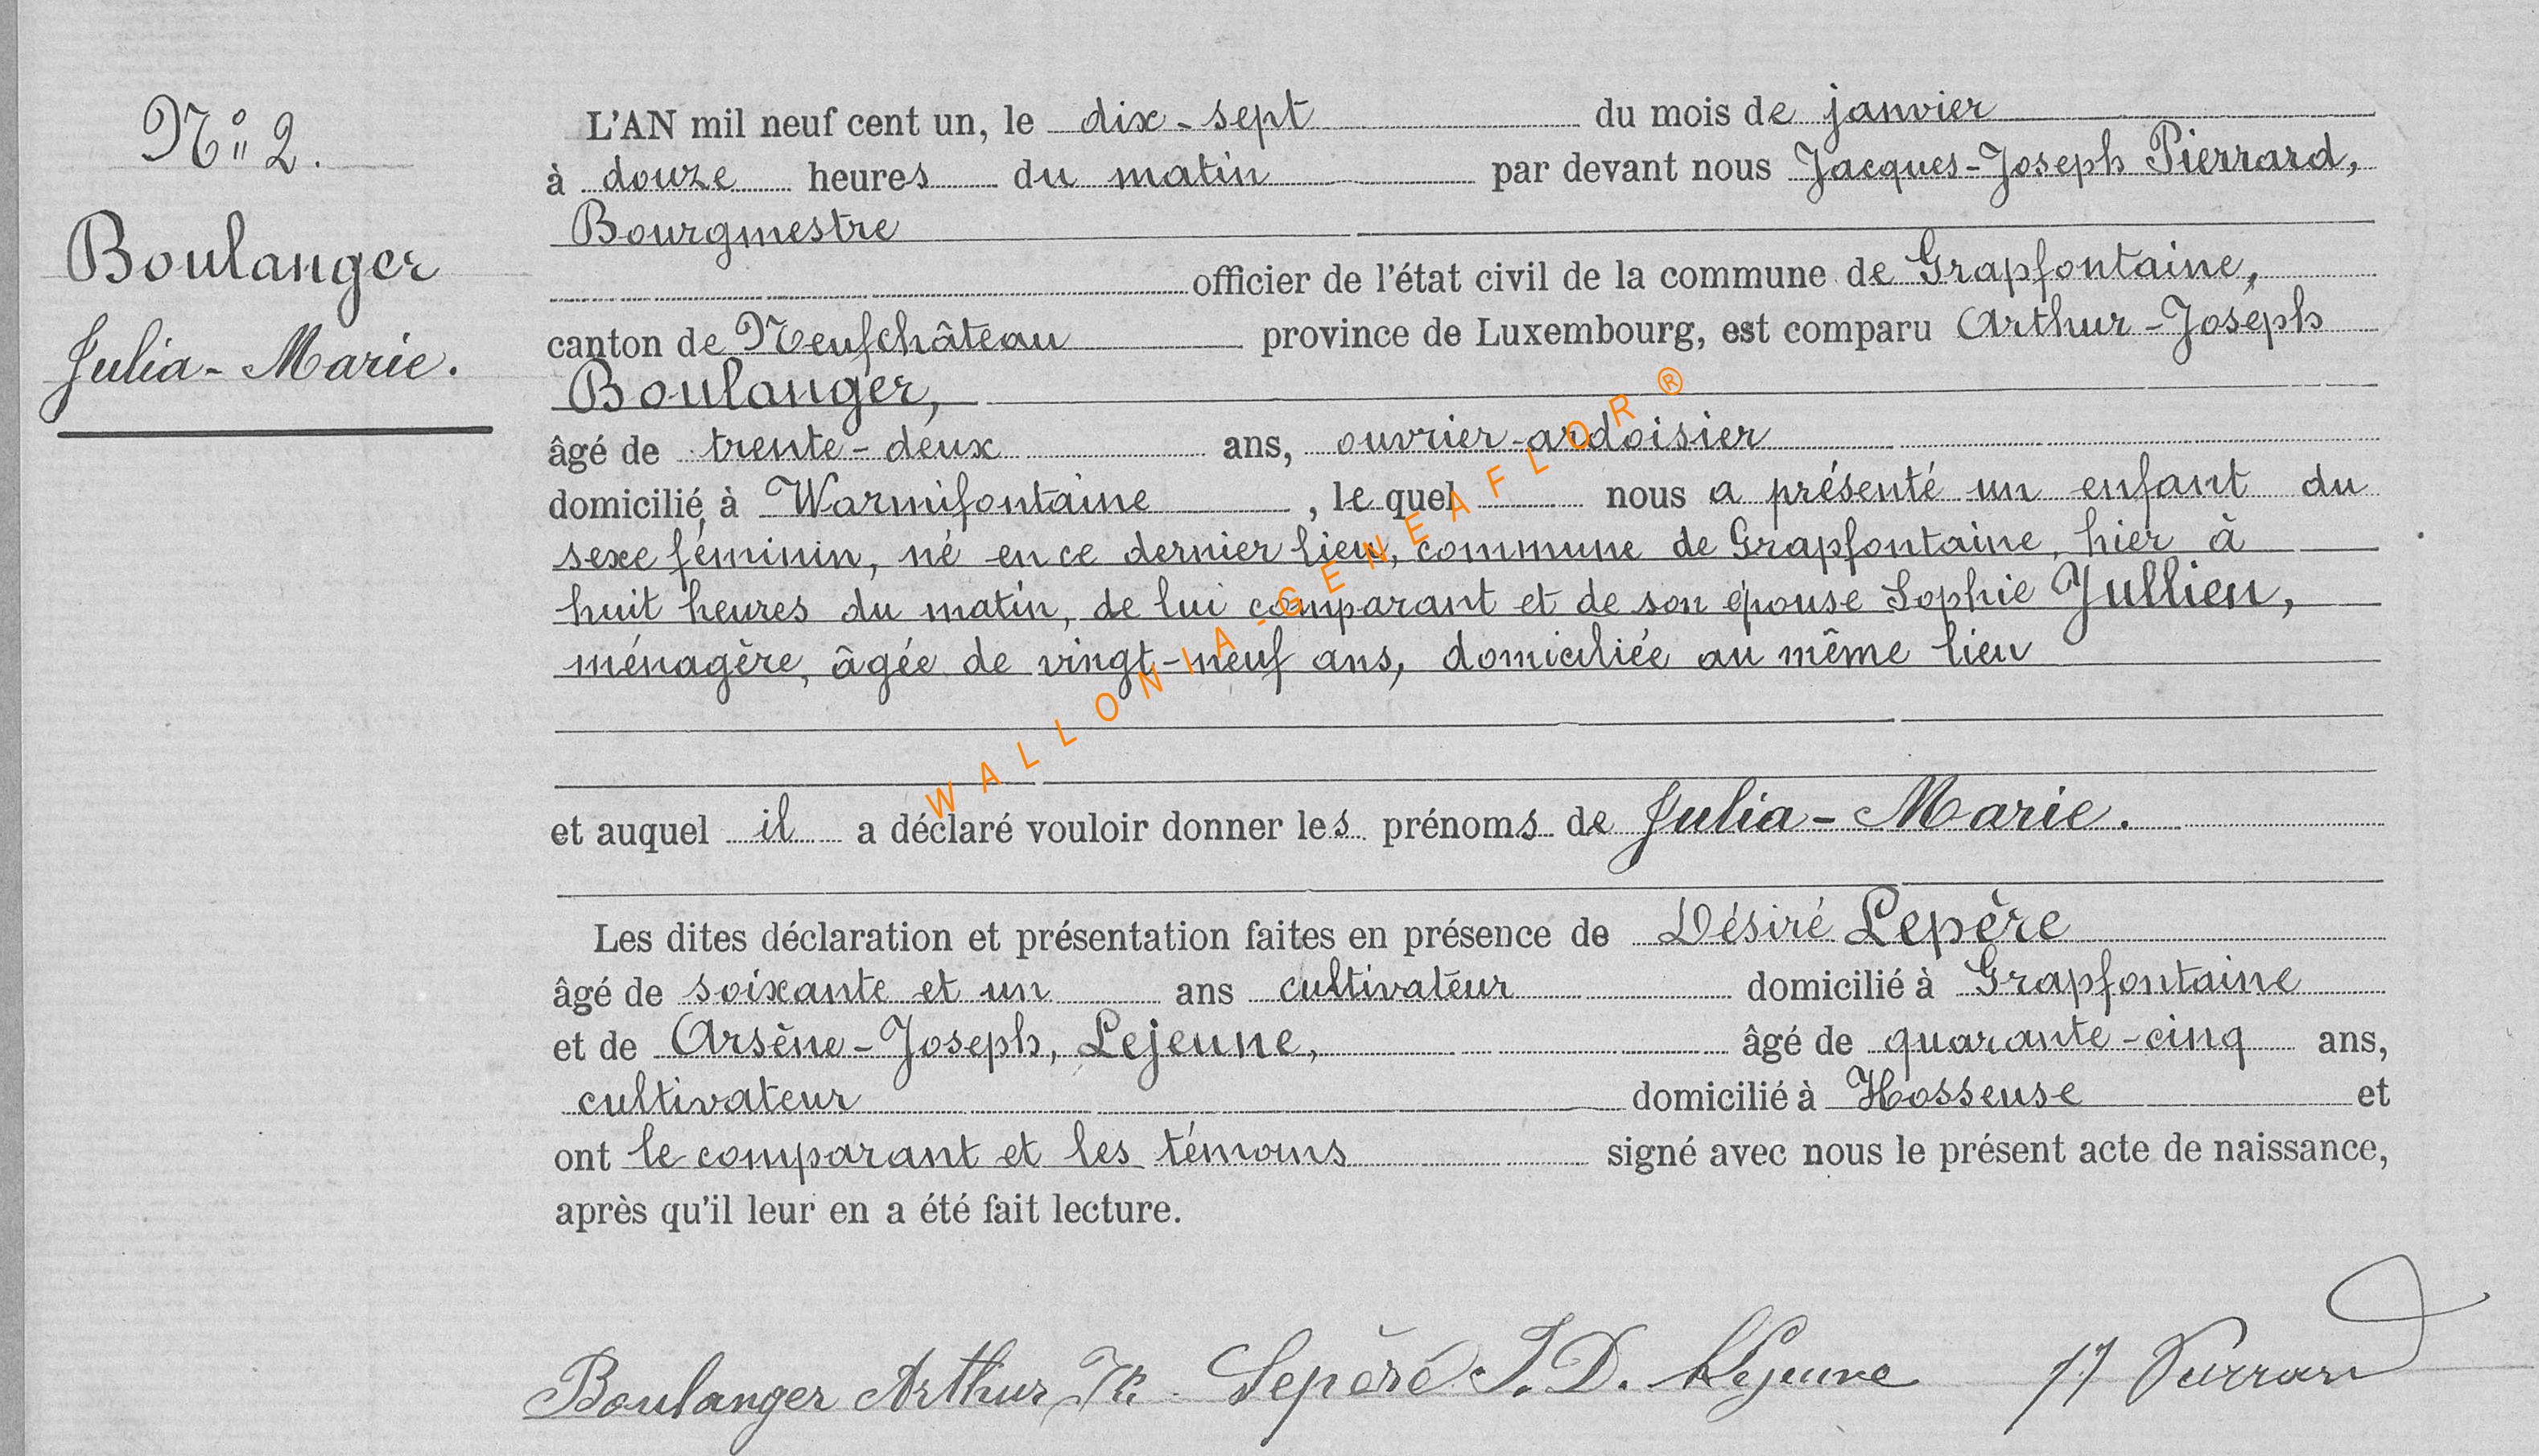 N° 2.
Boulanger
Julia-Marie.
L'AN mil neuf cent un, le dix-sept du mois de janvier
à douze heures du matin par devant nous Jacques-Joseph Pierrard,
Bourgmestre
officier de l'état civil de la commune de Grapfontaine,
canton de Neufchâteau province de Luxembourg, est comparu Arthur-Joseph
Boulanger,
âgé de trente-deux ans, ouvrier-ardoisier
domicilié à Warmifontaine, le quel nous a présenté un enfant du
sexe féminin, né en ce dernier lieu, commune de Grapfontaine, hier à
huit heures du matin, de lui comparant et de son épouse Sophie Jullien,
ménagère, âgée de vingt-neuf ans, domiciliée au même lieu
et auquel il a déclaré vouloir donner les prénoms de Julia-Marie.
Les dites déclaration et présentation faites en présence de Désiré Lepère
âgé de soixante et un ans cultivateur domicilié à Grapfontaine
et de Arsène-Joseph, Lejeune, âgé de quarante-cinq ans,
cultivateur domicilié à Hosseuse et
ont le comparant et les témoins signé avec nous le présent acte de naissance,
après qu'il leur en a été fait lecture.
Boulanger Arthur Lepère J. D. Lejeune JJ Pierrard
WALLONIA-GENEAFLOR®